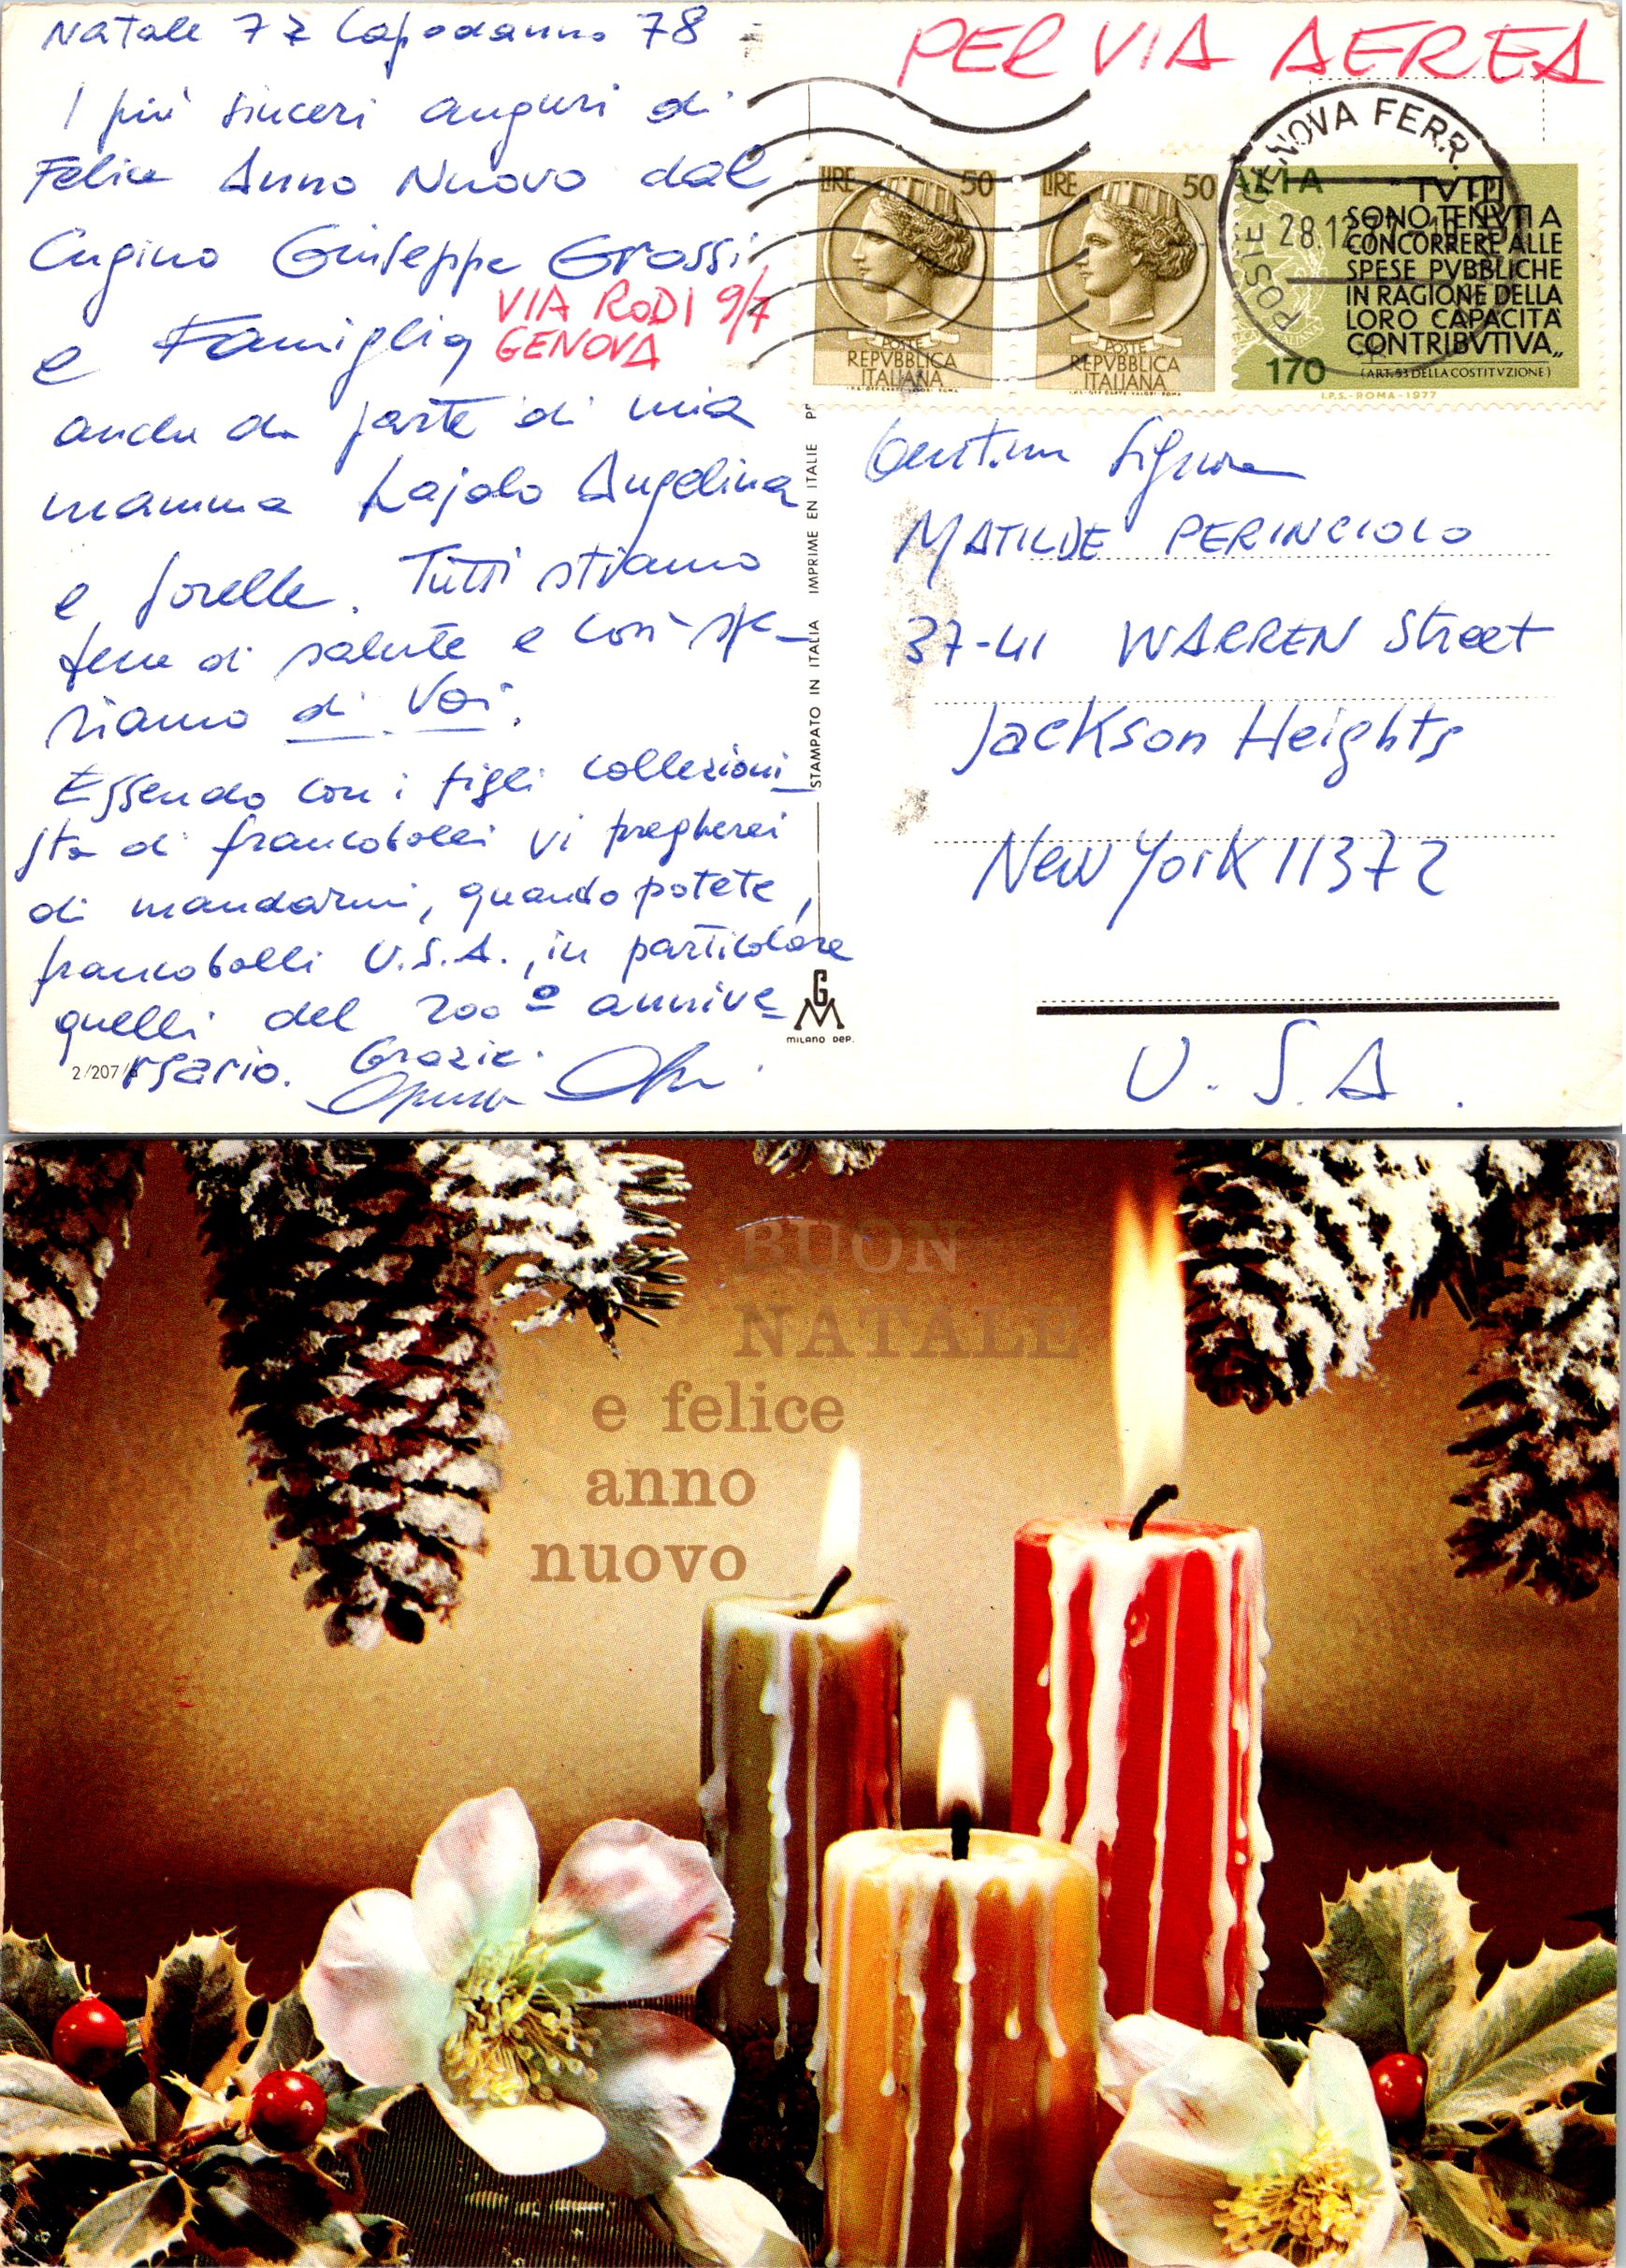 Natale 77 Capodanno 78
I più sinceri auguri di
Felice Anno Nuovo dal
Cugino Giuseppe Grossi
VIA RODI 9/7
GENOVA
e Famiglia
anche da parte di mia
mamma Lajolo Angelina
e sorelle. Tutti stiamo
bene di salute e così spe-
riamo di Voi.
Essendo con i figli collezioni-
sta di francobolli vi pregherei
di mandarmi, quando potete,
francobolli U.S.A., in particolare
quelli del 200º annive-
rsario. Grazie.
2/207/
PER VIA AEREA
POSTE GENOVA FERR.
28.12
LIRE 50
POSTE
REPVBBLICA
ITALIANA
I.P.S. OFF. CARTE-VALORI-ROMA
LIRE 50
POSTE
REPVBBLICA
ITALIANA
I.P.S. OFF. CARTE-VALORI-ROMA
"TVTTI
SONO TENVTI A
CONCORRERE ALLE
SPESE PVBBLICHE
IN RAGIONE DELLA
LORO CAPACITA
CONTRIBVTIVA„
170
(ART. 53 DELLA COSTITVZIONE)
I.P.S.-ROMA-1977
STAMPATO IN ITALIA IMPRIME EN ITALIE
GM
MILANO DEP.
Gent.ma Signora
MATILDE PERINCIOLO
37-41 WARREN Street
Jackson Heights
New York 11372
U.S.A.
BUON
NATALE
e felice
anno
nuovo